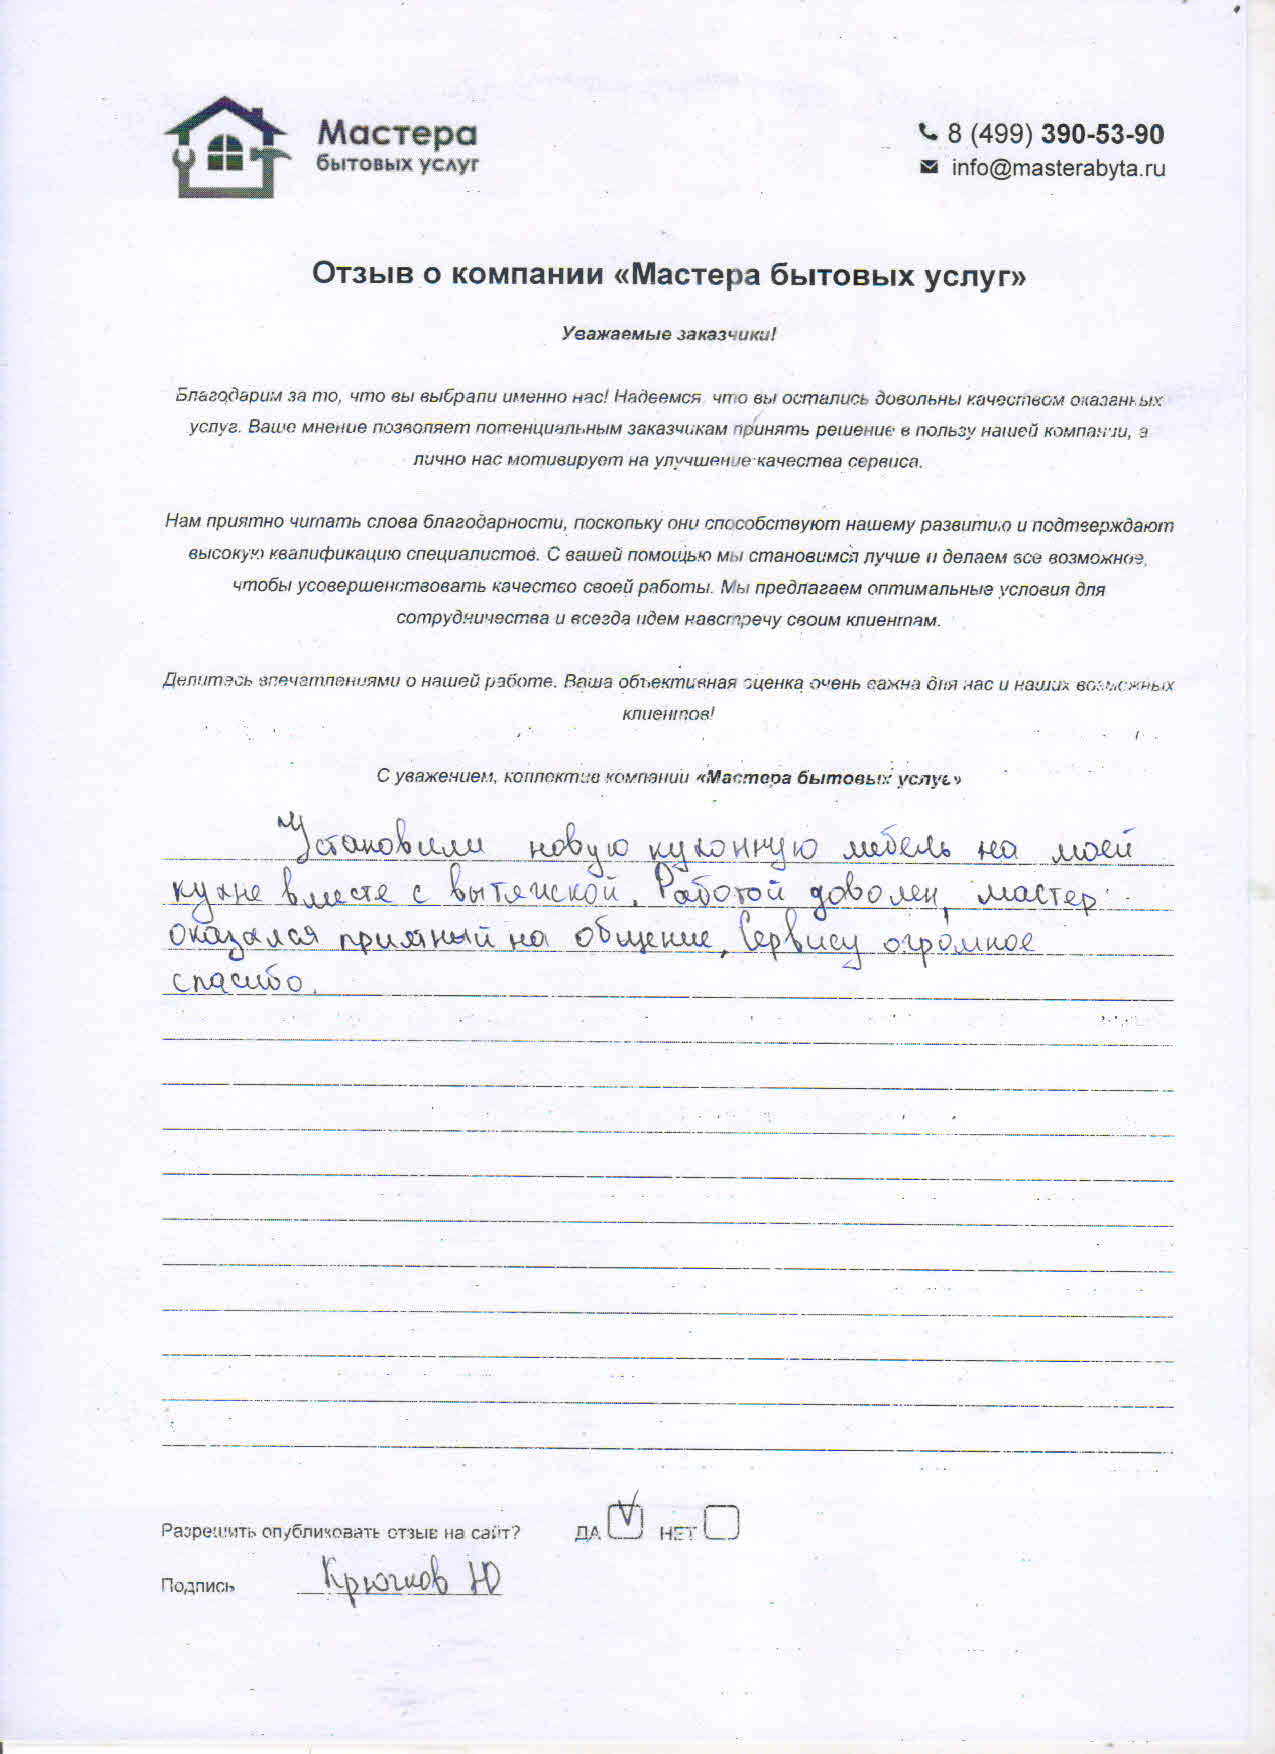 Мастера
бытовых услуг
8 (499) 390-53-90
info@masterabyta.ru
Отзыв о компании «Мастера бытовых услуг»
Уважаемые заказчики!
Благодарим за то, что вы выбрали именно нас! Надеемся, что вы остались довольны качеством оказанных
услуг. Ваше мнение позволяет потенциальным заказчикам принять решение в пользу нашей компании, а
лично нас мотивирует на улучшение качества сервиса.
Нам приятно читать слова благодарности, поскольку они способствуют нашему развитию и подтверждают
высокую квалификацию специалистов. С вашей помощью мы становимся лучше и делаем все возможное,
чтобы усовершенствовать качество своей работы. Мы предлагаем оптимальные условия для
сотрудничества и всегда идем навстречу своим клиентам.
Делитесь впечатлениями о нашей работе. Ваша объективная оценка очень важна для нас и наших возможных
клиентов!
С уважением, коллектив компании «Мастера бытовых услуг»
Установили новую кухонную мебель на моей
кухне вместе с вытяжкой. Работой доволен, мастер
оказался приятный на общение, Сервису огромное
спасибо.
Разрешить опубликовать отзыв на сайт? ДА V НЕТ
Подпись Крючков Ю